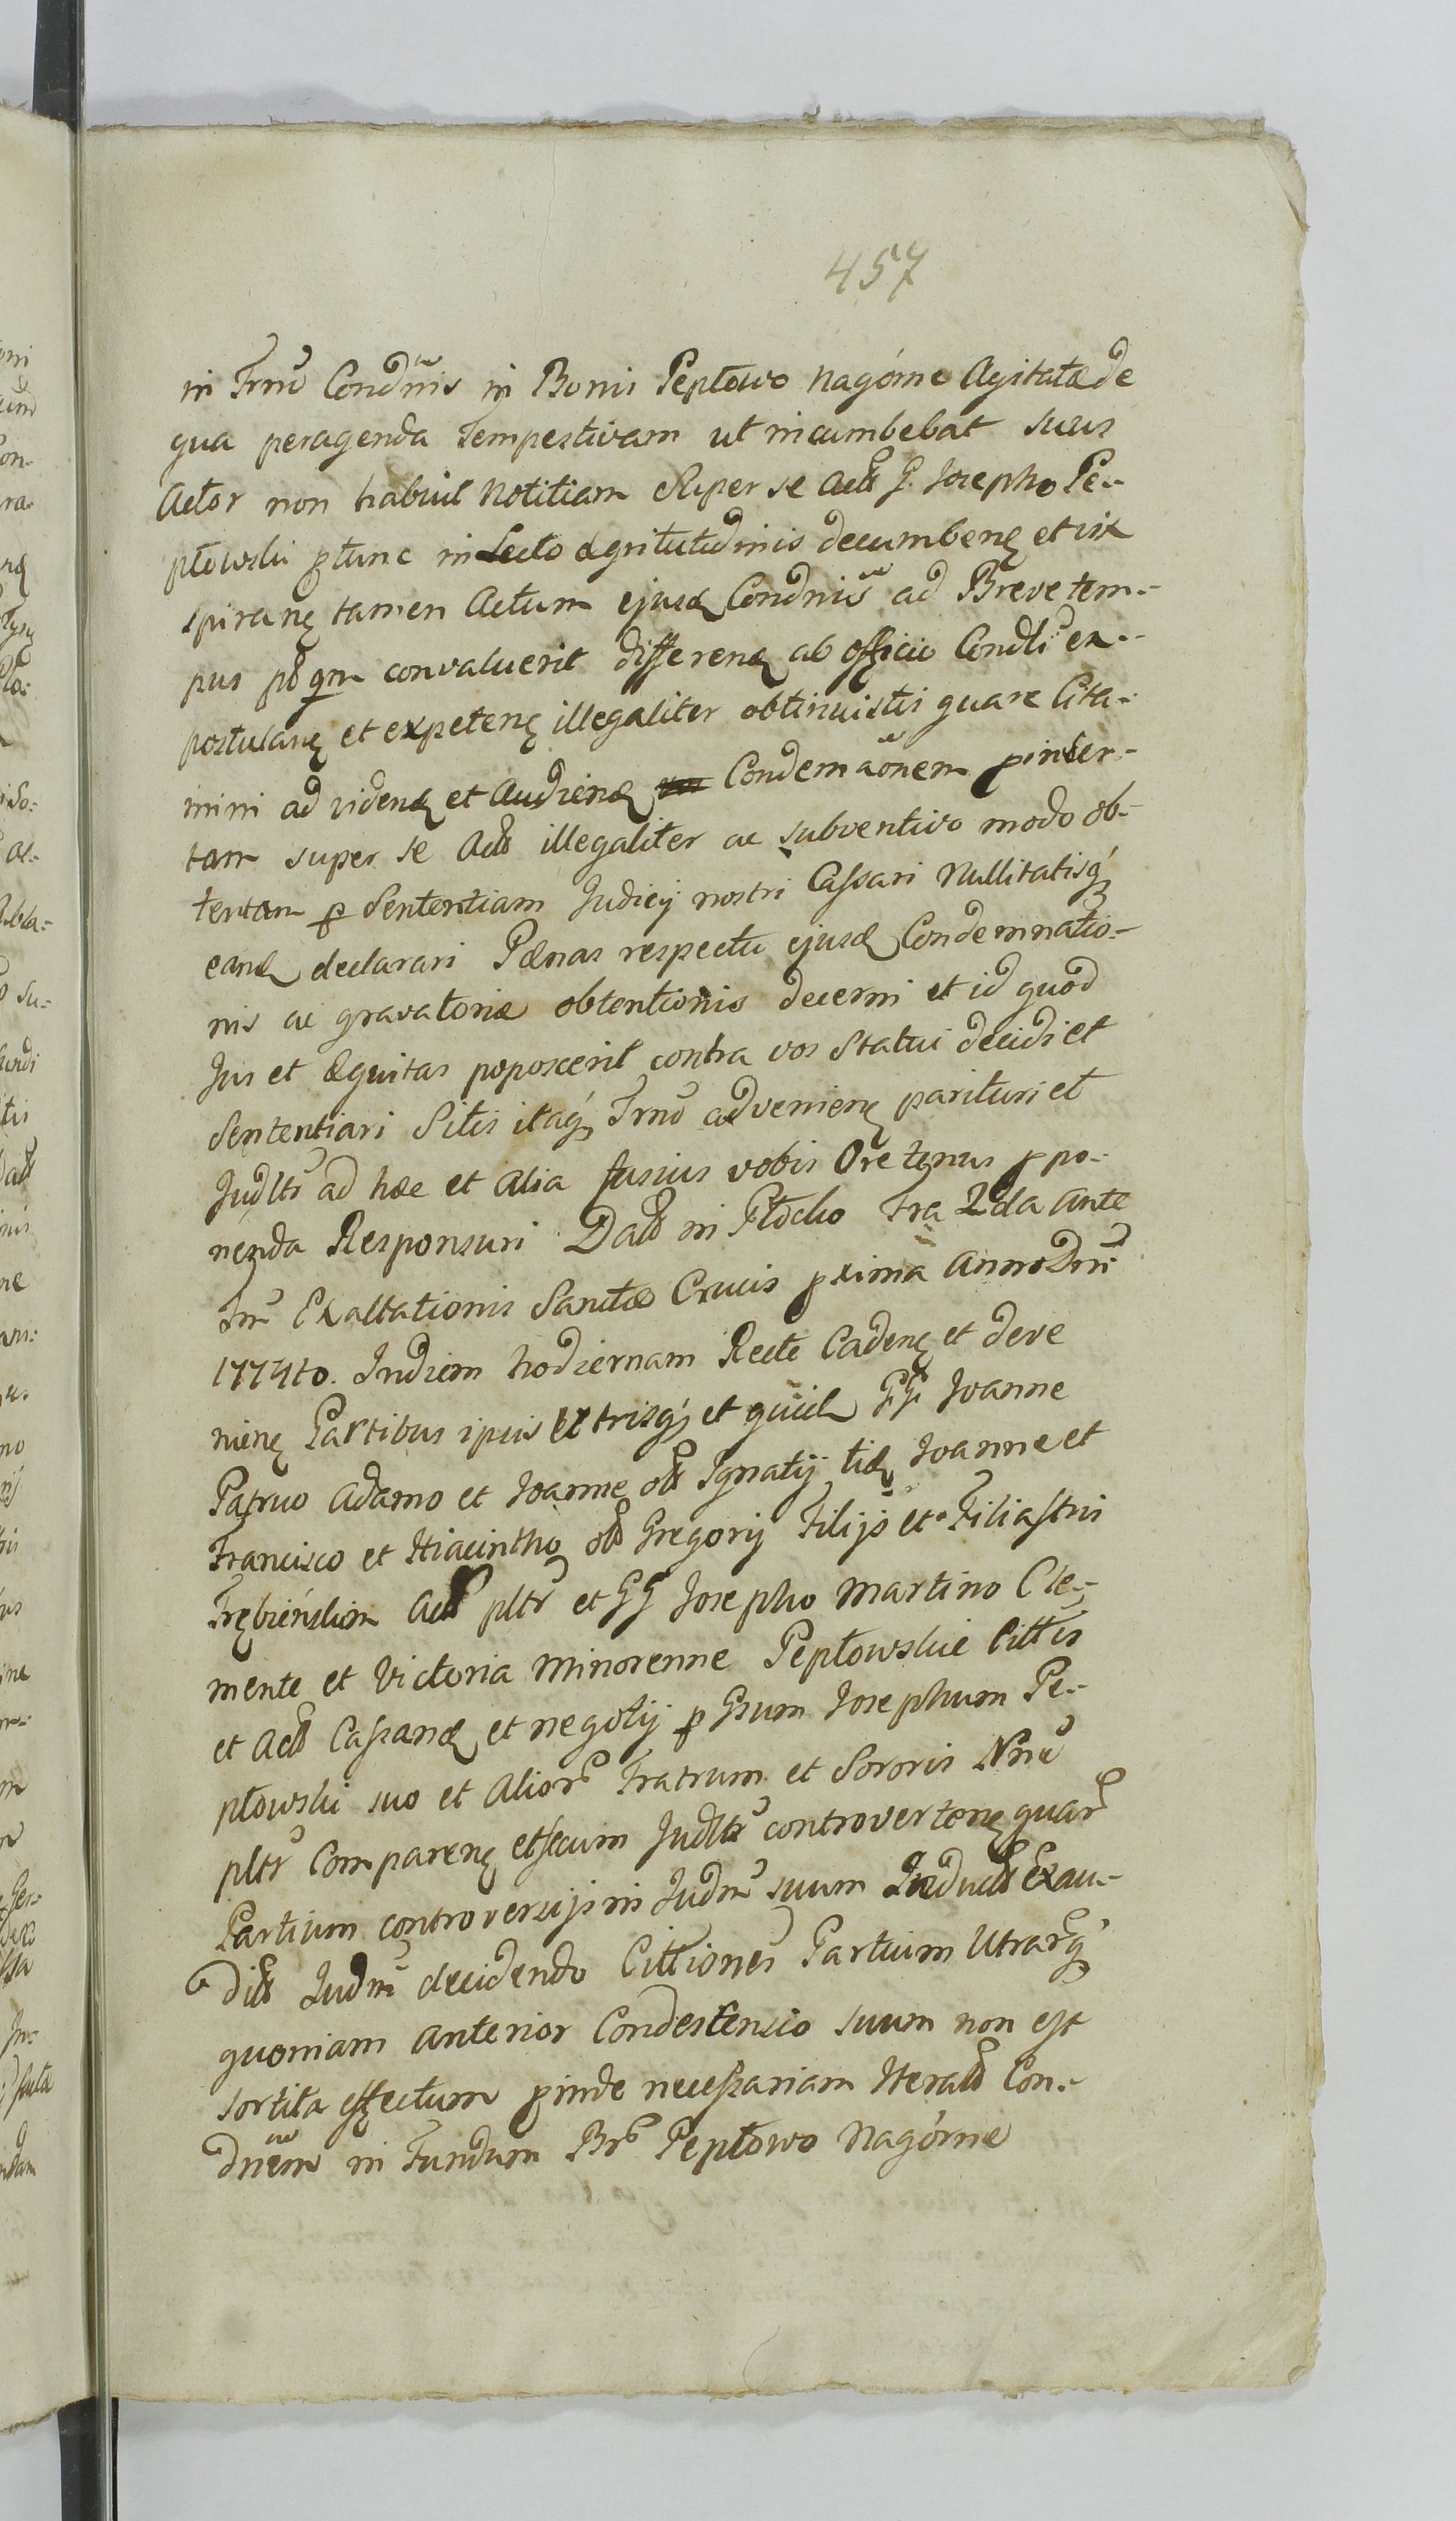 457
in Trno Condnis in Bonis Pepłowo Nagórne Agitatæ de
qua peragenda Tempestivam ut incumbebat suus
Actor non habuit Notitiam Super se Act G. Josepho Pe-
płowski ptunc in Lecto ægritutudinis decumben et vix
spiran tamen Actum ejusd Condnis ad Breve tem-
pus pt qm convaluerit differend ab officio Condli ex-
postulan et expeten illegaliter obtinuistis quare Cita-
mini ad vidend et Audiend Condemnaonem pinter-
tam super se Act illegaliter ac subventivo modo ob-
tentam p Sententiam Judicij nostri Cassari Nullitatisq
eand declarari Pænas respectu ejusd Condemnatio-
nis ac gravatoriæ obtentionis decerni et id quod
Jus et Æquitas poposcerit contra vos Statui decidi et
Sententiari Sitis itaq Trno advenien parituri et
Judltr ad hæc et alia fusius vobis Ore tenus ppo-
nenda Responsuri Datt in Płocko Fra 2da ante
Fm Exaltationis Sanctæ Crucis pxima Anno Dni
1774to. Indiem hodiernam Recte Caden et deve
nien Partibus ipsis Utrisq et quid GG Joanne
Patruo Adamo et Joanne olt Ignatij tid Joanne et
Francisco et Hiacintho olt Gregorij Filijs et Filiastris
Trębińskim Act pltr et GG Josepho Martino Cle-
mente et Victoria Minorenne Pepłowskie Cittis
et Act Cassand et negotij p Gsum Josephum Pe-
płowski suo et Alior Fratrum et Sororis Nne
pltr Comparen etsecum Judltr controverten quar
Partium controversijs in Judm suum Inductt Exau-
ditt Judm decidendo Cittiones Partium Utrarq
quoniam anterior Condestensio suum non est
sortita effectum pinde necessariam Iteratt Con-
dnem in Fundum Br Pepłowo Nagórne